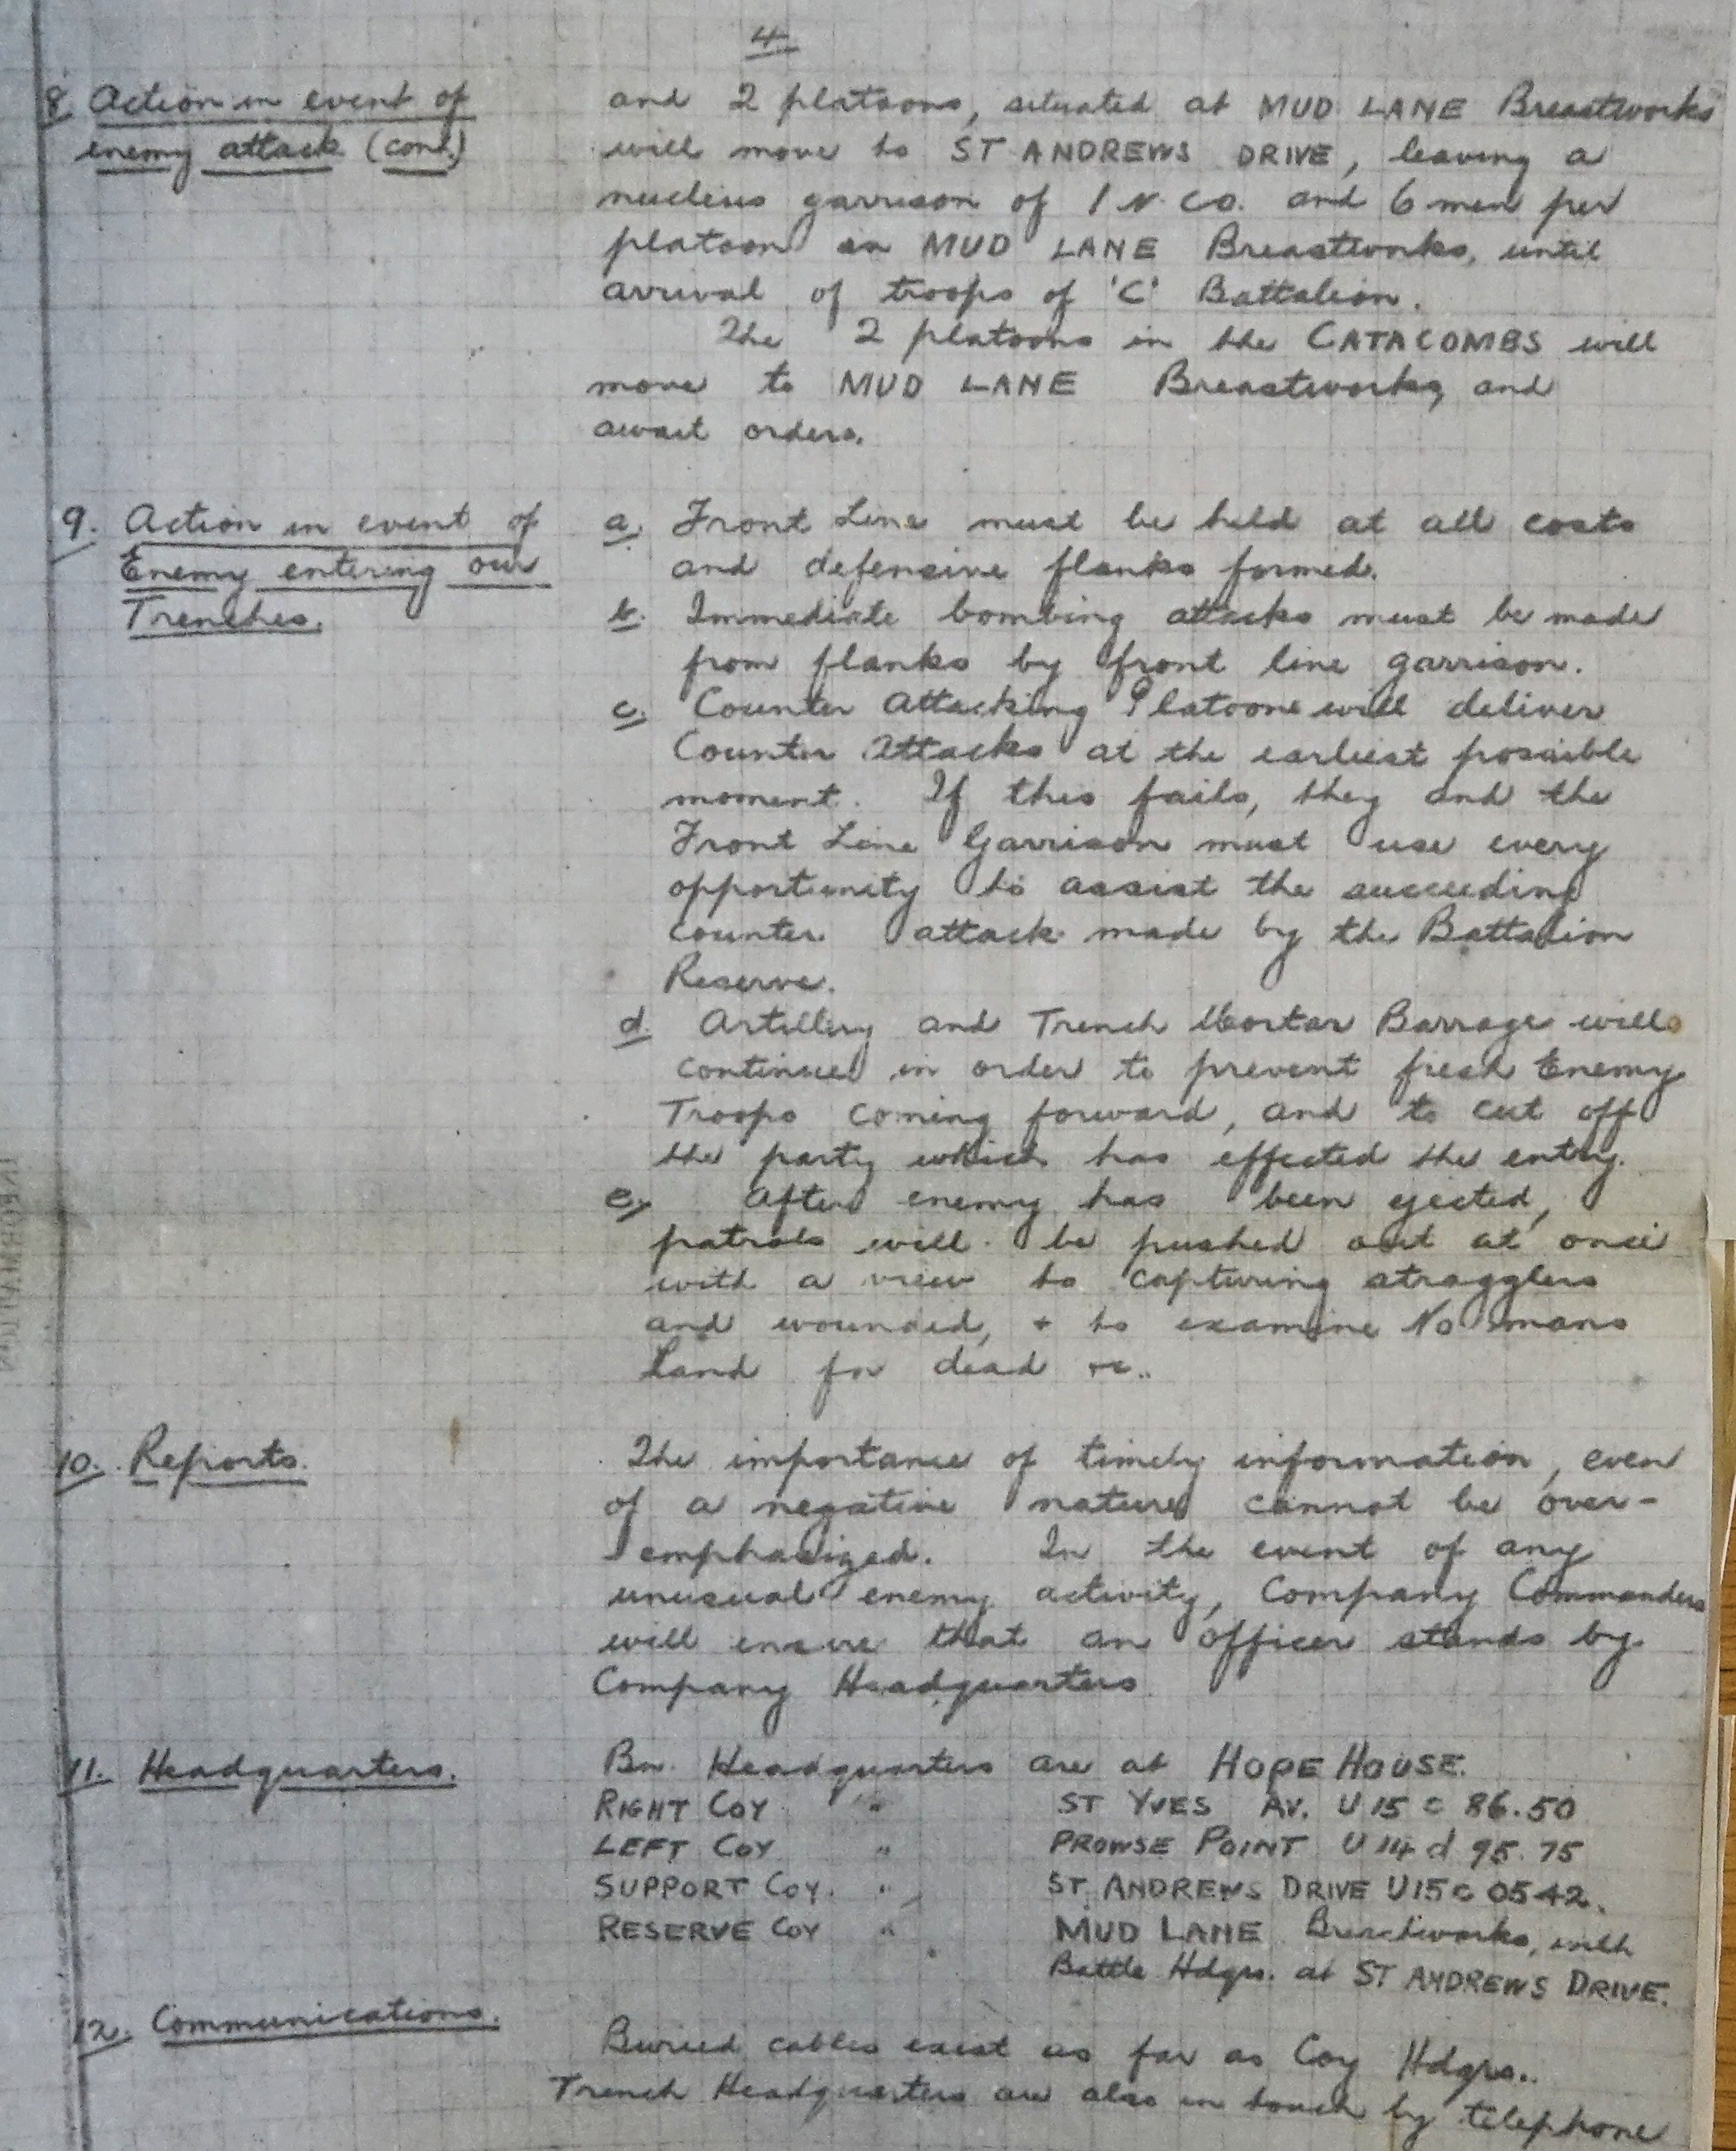 4
8. Action in event of
enemy attack (cont.)
and 2 platoons, situated at MUD LANE Breastworks
will move to ST ANDREWS DRIVE, leaving a
nucleus garrison of 1 N.C.O. and 6 men per
platoon in MUD LANE Breastworks, until
arrival of troops of 'C' Battalion.
The 2 platoons in the CATACOMBS will
move to MUD LANE Breastworks, and
await orders.
9. Action in event of
Enemy entering our
Trenches.
a. Front Line must be held at all costs
and defensive flanks formed.
b. Immediate bombing attacks must be made
from flanks by front line garrison.
c. Counter Attacking Platoons will deliver
Counter Attacks at the earliest possible
moment. If this fails, they and the
Front Line Garrison must use every
opportunity to assist the succeeding
counter attack made by the Battalion
Reserve.
d. Artillery and Trench Mortar Barrage will
continue in order to prevent fresh Enemy
Troops coming forward, and to cut off
the party which has effected the entry.
e. After enemy has been ejected,
patrols will be pushed out at once
with a view to capturing stragglers
and wounded, + to examine No mans
Land for dead +c..
10. Reports.
The importance of timely information, even
of a negative nature cannot be over-
emphasized. In the event of any
unusual enemy activity, Company Commanders
will ensure that an officer stands by
Company Headquarters
11. Headquarters.
Bn. Headquarters are at HOPE HOUSE.
RIGHT COY " ST YVES AV. U 15 c 86.50
LEFT COY " PROWSE POINT U 14 d 95.75
SUPPORT COY. " ST. ANDREWS DRIVE U15 c 05 42.
RESERVE COY " MUD LANE Breastworks, with
Battle Hdqrs. at ST ANDREWS DRIVE.
12. Communications.
Buried cables exist as far as Coy Hdqrs..
Trench Headquarters are also in touch by telephone